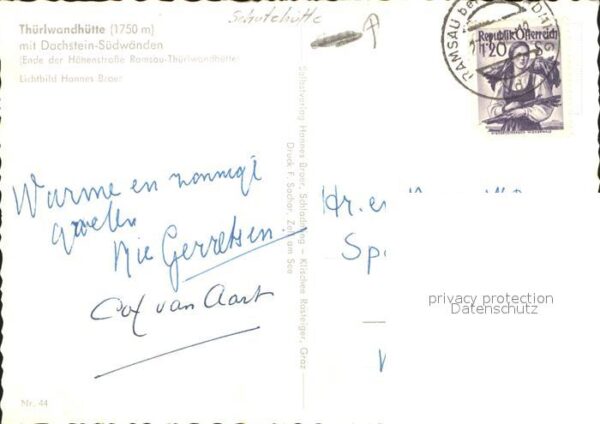 Schutzhütte
Thürlwandhütte (1750 m)
mit Dachstein-Südwänden
(Ende der Höhenstraße Ramsau-Thürlwandhütte)
Lichtbild Hannes Braer
RAMSAU
Republik Österreich
1'20 S
Selbstverlag Hannes Braer, Schladming – Klischee Rasteiger, Graz
Druck F. Sochor, Zell am See
Warme en zonnige
groeten
Nie Gerretsen.
van Aart
Hr. en
Sp
privacy protection
Datenschutz
Nr. 44